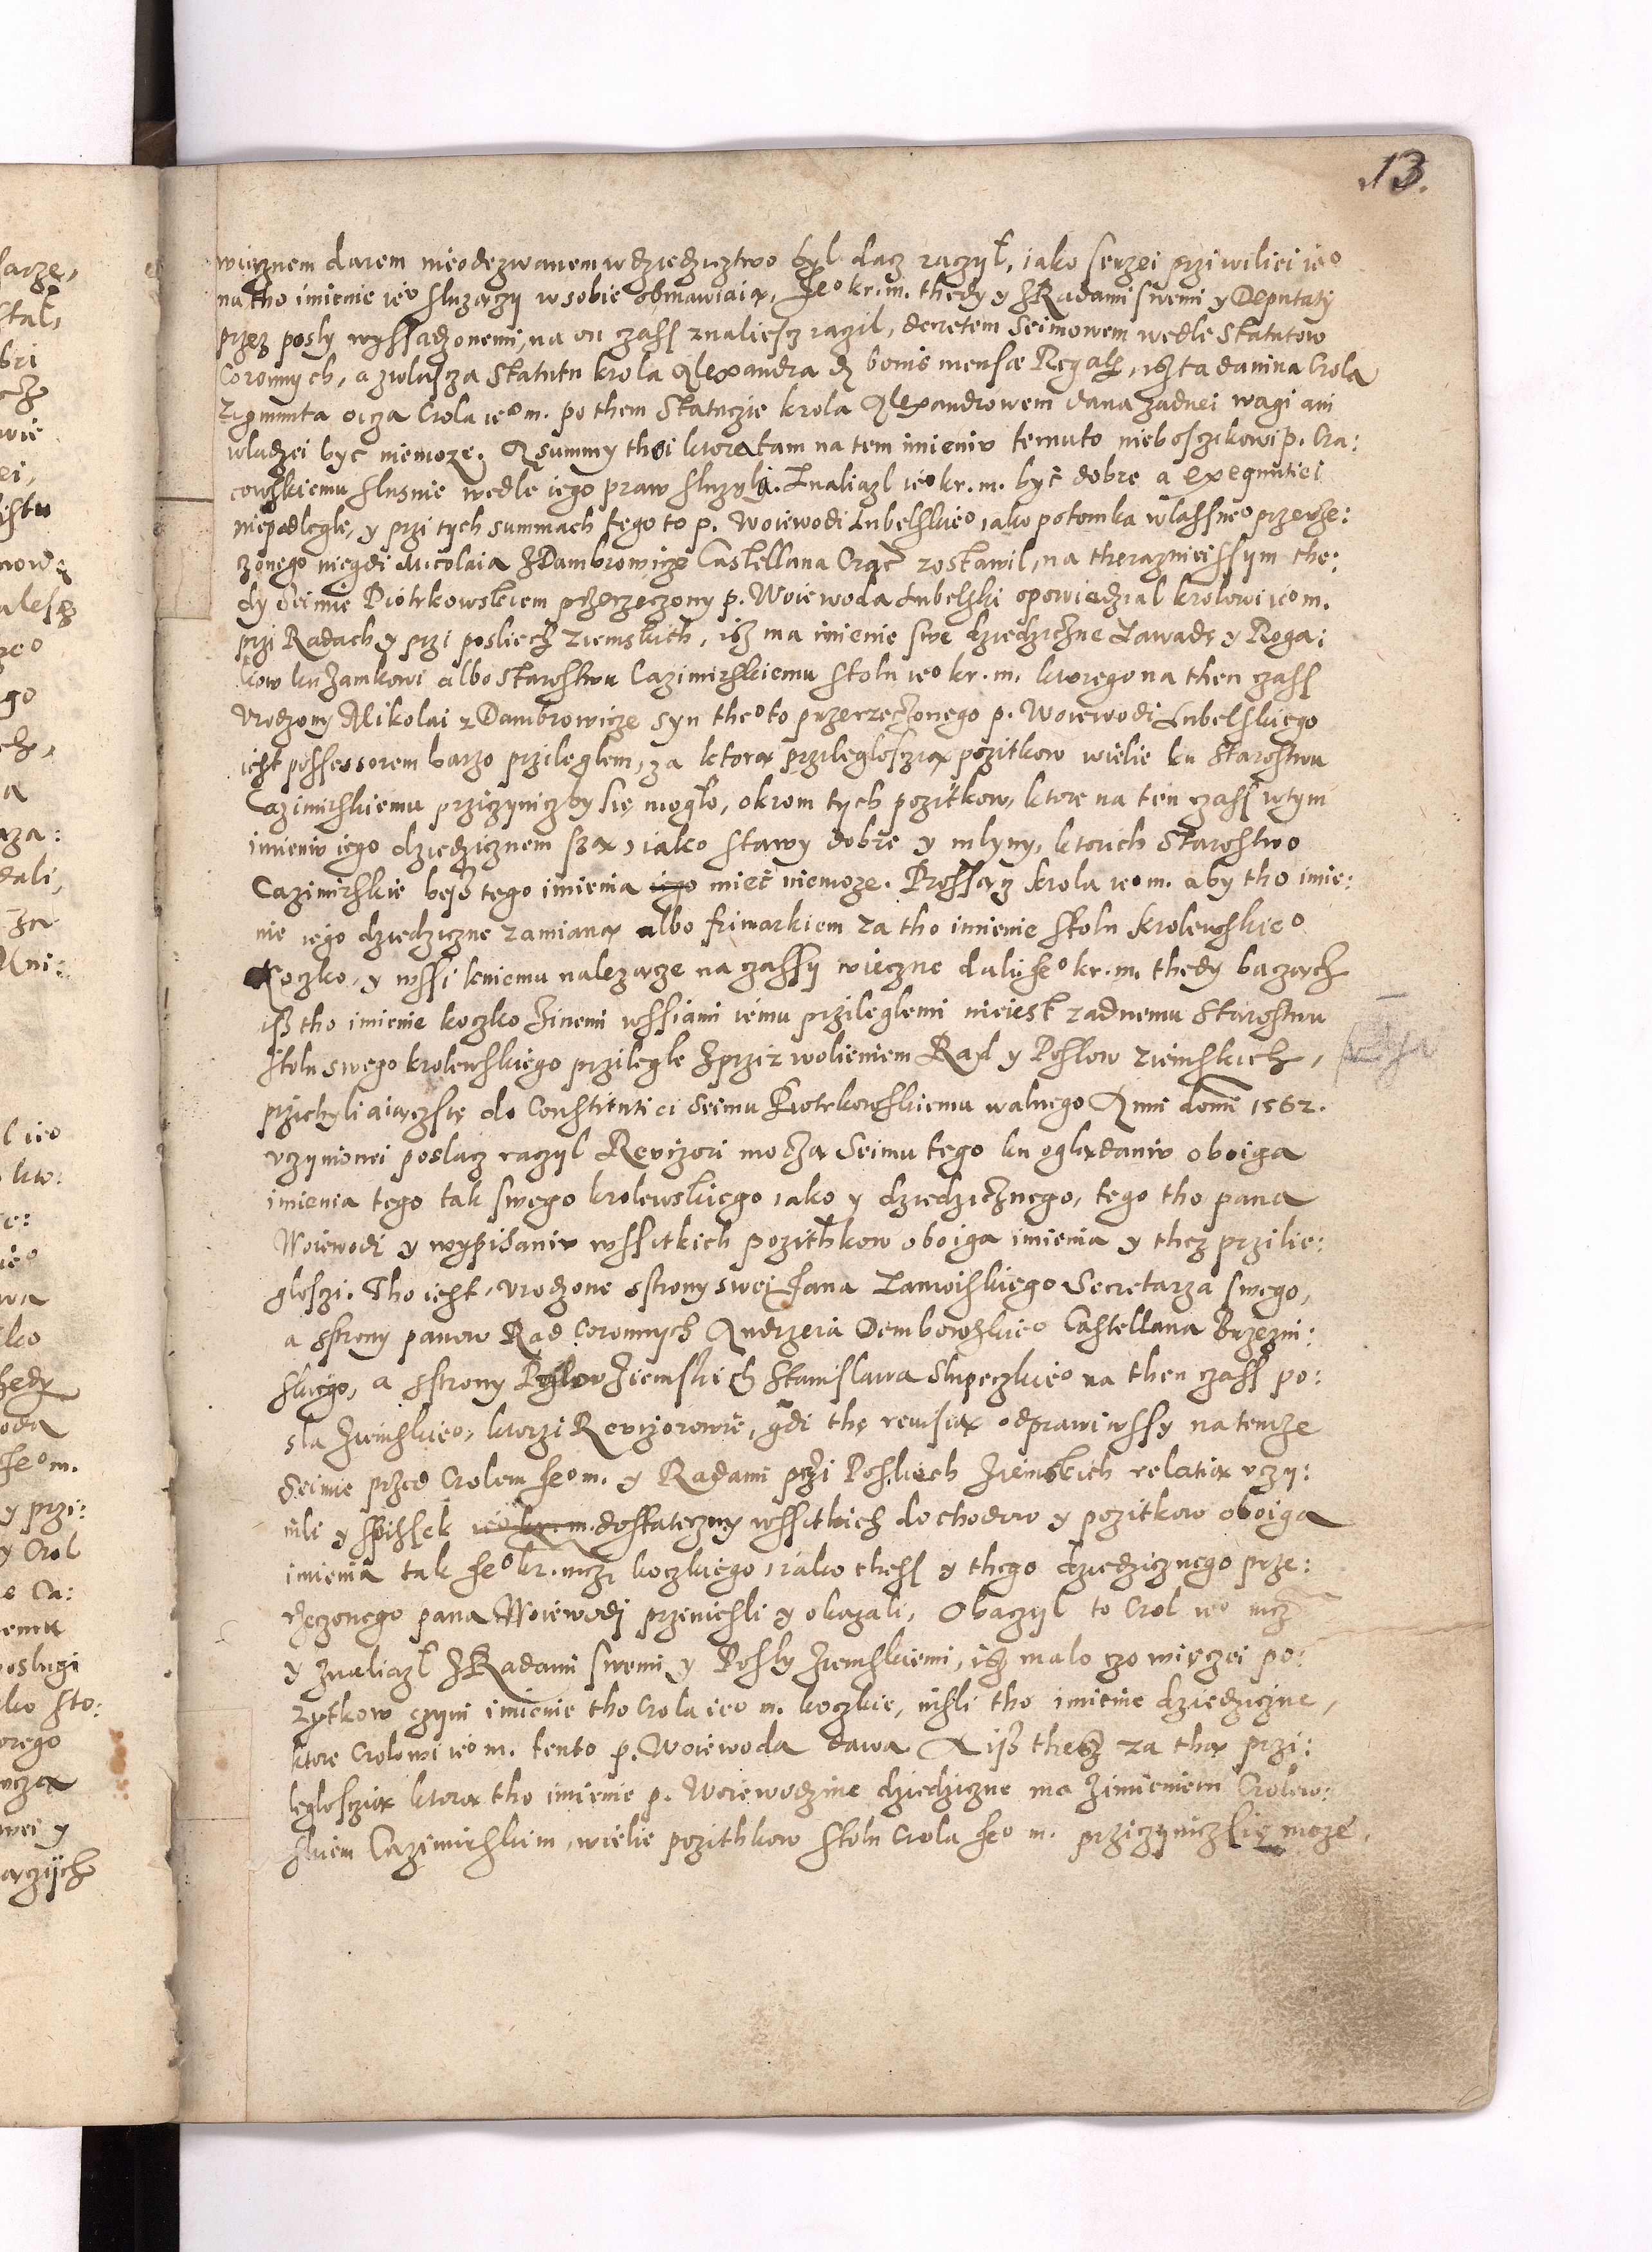 13.
wiecznem darem nieodezwanem w dziedzicztwo byl dacz raczył, iako serzei prziwiliei ieo
na tho imienie ieo sluzączy w sobie obmawiaią, Jeo kr. m. thedy y z Radami swemi y Deputaty
przez posly wyssadzonemi, na on czass znaliescz razil, decretem Seimowem wedle Statutow
Coronnych, a zwlascza Statutu krola Alexandra de bonis mensæ Regalis, isz ta danina Crola
Zigmunta oicza Crola ieo m. po them Statuczie krola Alexandrowem dana zadnei wagi ani
wladzei być niemoze. A summy thei ktora tam na tem imieniu temuto nieboszczikowi p. Cra:
cowskiemu slusnie wedle iego praw sluzyla. Znaliazl ieo kr. m. być dobre a exequutiei
niepodlegle, y przi tych summach tego to p. Woiewodi Lubelskieo iako potomka wlassneo przerze:
zonego niegdi Micolaia z Dambrowicze Castellana Crac̄ zostawil, na therazniejssym the:
dy Seimie Piotrkowskiem przerzeczony p. Woiewoda Lubelski opowiedzial krolowi ieo m.
przi Radach y przi posliech ziemskich, isz ma imienie swe dziedziczne Zawade y Roga:
low ku zamkowi albo Starostwu Cazimirskiemu stolu ieo kr. m. ktorego na then czass
Urodzony Mikolai z Dambrowicze syn theo to przerzeczonego p. Woiewodi Lubelskiego
iest possessorem barzo przileglem, za ktorą przilegloscią pozitkow wielie ku Starostwu
Cazimirskiemu prziczynicz by się mogło, okrom tych pozitkow, ktore na ten czass w tym
imieniu iego dziedzicznem szą, iako stawy dobre y mlyny, ktorich Starostwo
Cazimirskie besz tego imienia iego mieć niemoze. Prossącz krola ieo m. aby tho imie:
nie iego dziedziczne zamianą albo frimarkiem za tho imienie stolu krolewskieo
Koczko, y wssi kniemu nalezącze na czassy wieczne dali. Jeo kr. m. thedy baczącz
isz tho imienie koczko zinemi wssiami iemu przileglemi nieiest zadnemu Starostwu
stolu swego krolewskiego przilegle z przizwolieniem Rad y Poslow ziemskich,
przichyliaiączsię do Constitutiei Seimu Piotrkowskiemu walnego Anni domi 1562.
uczynionei poslacz raczyl Revizori moczą Seimu tego ku oglądaniu oboiga
imienia tego tak swego krolewskiego iako y dziedzicznego, tego tho pana
Woiewodi y wypisaniu wssitkich pozithkow oboiga imienia y thez przilie:
glosczi. Tho iest, urodzone s strony swei Jana Zamoiskiego Secretarza swego,
a s strony panow Rad Coronnych Andrzeia Dembowskieo Castellana Brzezin:
skiego, a s strony Poslow Ziemskich Stanislawa Slupeczkieo na then czass po:
sla Ziemskieo, ktorzi Revizorowie, gdi thę revisią odprawiwssy na temze
Seimie przed Crolem Jeo m. y Radami przi Posliech Ziemskich relatią uczy:
nili y spissek ieo kr. m. dostateczny wssitkich dochodow y pozitkow oboiga
imienia tak Jeo kr. mczi koczkiego, iako thess y thego dziedzicznego prze:
rzeczonego pana Woiewodi przeniesli y okazali, Obaczyl to Crol ieo mcz
y znaliazł z Radami swemi y Posly Ziemskiemi, isz malo czo więczei po:
zytkow czyni imienie tho Crola ieo m. koczkie, nisli tho imienie dziedziczne,
ktore Crolowi ieo m. tento p. Woiewoda dawa A isz thesz za thą przi:
leglosczią ktorą tho imienie p. Woiewodzine dziedziczne ma z imieniem Crolew:
skiem Cazimirskim, wielie pozithkow stolu Crola Jeo m. prziczynicz się moze,